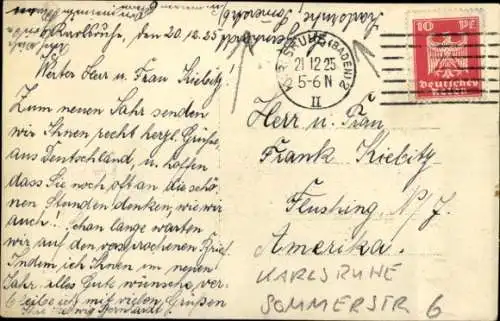 Karlsruhe, den 20.12.25
Werter Herr u. Frau Kiebitz!
Zum neuen Jahr senden
wir Ihnen recht herzl. Grüße,
aus Deutschland, u. hoffen
dass Sie noch oft an die schö-
nen Stunden denken, wie wir
auch! Schon lange warten
wir auf den versprochenen Brief.
Indem ich Ihnen im neuen
Jahr alles Gute wünsche, ver-
bleibe ich mit vielen Grüßen
KARLSRUHE (BADEN) 2
21.12.25
5-6 N
II
10 PF
Deutsches
Reich
Herr u. Frau
Frank Kiebitz
Flushing, N/J.
Amerika.
KARLSRUHE
SOMMERSTR 6